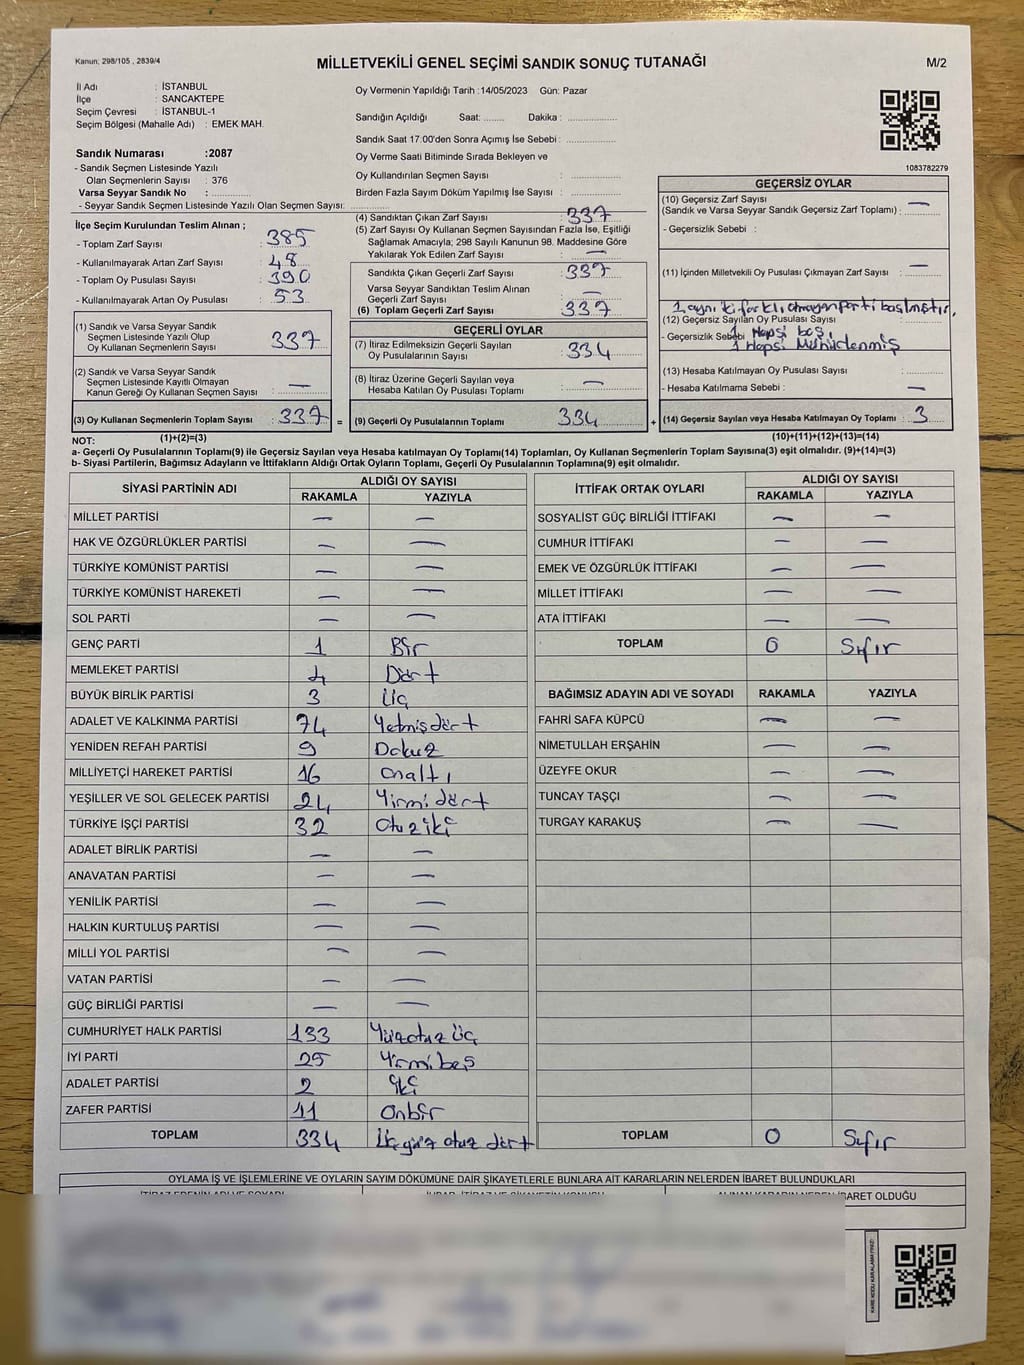 Kanun, 298/105 , 2839/4
MİLLETVEKİLİ GENEL SEÇİMİ SANDIK SONUÇ TUTANAĞI
M/2
İl Adı : İSTANBUL
İlçe : SANCAKTEPE
Seçim Çevresi : İSTANBUL-1
Seçim Bölgesi (Mahalle Adı) : EMEK MAH.
Oy Vermenin Yapıldığı Tarih :14/05/2023 Gün: Pazar
Sandığın Açıldığı Saat: Dakika :
Sandık Saat 17:00'den Sonra Açımış İse Sebebi :
Oy Verme Saati Bitiminde Sırada Bekleyen ve
Oy Kullandırılan Seçmen Sayısı :
Birden Fazla Sayım Döküm Yapılmış İse Sayısı :
1083782279
Sandık Numarası :2087
- Sandık Seçmen Listesinde Yazılı
Olan Seçmenlerin Sayısı : 376
Varsa Seyyar Sandık No :
- Seyyar Sandık Seçmen Listesinde Yazılı Olan Seçmen Sayısı:
İlçe Seçim Kurulundan Teslim Alınan ;
- Toplam Zarf Sayısı : 385
- Kullanılmayarak Artan Zarf Sayısı : 48
- Toplam Oy Pusulası Sayısı : 390
- Kullanılmayarak Artan Oy Pusulası : 53
(1) Sandık ve Varsa Seyyar Sandık
Seçmen Listesinde Yazılı Olup
Oy Kullanan Seçmenlerin Sayısı : 337
(2) Sandık ve Varsa Seyyar Sandık
Seçmen Listesinde Kayıtlı Olmayan
Kanun Gereği Oy Kullanan Seçmen Sayısı : —
(3) Oy Kullanan Seçmenlerin Toplam Sayısı : 337 =
(1)+(2)=(3)
(4) Sandıktan Çıkan Zarf Sayısı : 337
(5) Zarf Sayısı Oy Kullanan Seçmen Sayısından Fazla İse, Eşitliği
Sağlamak Amacıyla; 298 Sayılı Kanunun 98. Maddesine Göre
Yakılarak Yok Edilen Zarf Sayısı : —
Sandıkta Çıkan Geçerli Zarf Sayısı : 337
Varsa Seyyar Sandıktan Teslim Alınan
Geçerli Zarf Sayısı : —
(6) Toplam Geçerli Zarf Sayısı : 337
GEÇERLİ OYLAR
(7) İtiraz Edilmeksizin Geçerli Sayılan
Oy Pusulalarının Sayısı : 334
(8) İtiraz Üzerine Geçerli Sayılan veya
Hesaba Katılan Oy Pusulası Toplamı : —
(9) Geçerli Oy Pusulalarının Toplamı 334 +
GEÇERSİZ OYLAR
(10) Geçersiz Zarf Sayısı
(Sandık ve Varsa Seyyar Sandık Geçersiz Zarf Toplamı) : —
- Geçersizlik Sebebi :
(11) İçinden Milletvekili Oy Pusulası Çıkmayan Zarf Sayısı : —
1 aynı iki farklı olmayan parti basılmıştır.
(12) Geçersiz Sayılan Oy Pusulası Sayısı
- Geçersizlik Sebebi 1 Hepsi boş,
1 Hepsi Mühürlenmiş
(13) Hesaba Katılmayan Oy Pusulası Sayısı :
- Hesaba Katılmama Sebebi : —
(14) Geçersiz Sayılan veya Hesaba Katılmayan Oy Toplamı : 3
(10)+(11)+(12)+(13)=(14)
NOT:
a- Geçerli Oy Pusulalarının Toplamı(9) ile Geçersiz Sayılan veya Hesaba katılmayan Oy Toplamı(14) Toplamları, Oy Kullanan Seçmenlerin Toplam Sayısına(3) eşit olmalıdır. (9)+(14)=(3)
b- Siyasi Partilerin, Bağımsız Adayların ve İttifakların Aldığı Ortak Oyların Toplamı, Geçerli Oy Pusulalarının Toplamına(9) eşit olmalıdır.
SİYASİ PARTİNİN ADI ALDIĞI OY SAYISI
RAKAMLA YAZIYLA
MİLLET PARTİSİ — —
HAK VE ÖZGÜRLÜKLER PARTİSİ — —
TÜRKİYE KOMÜNİST PARTİSİ — —
TÜRKİYE KOMÜNİST HAREKETİ — —
SOL PARTİ — —
GENÇ PARTİ 1 Bir
MEMLEKET PARTİSİ 4 Dört
BÜYÜK BİRLİK PARTİSİ 3 Üç
ADALET VE KALKINMA PARTİSİ 74 Yetmişdört
YENİDEN REFAH PARTİSİ 9 Dokuz
MİLLİYETÇİ HAREKET PARTİSİ 16 Onaltı
YEŞİLLER VE SOL GELECEK PARTİSİ 24 Yirmi dört
TÜRKİYE İŞÇİ PARTİSİ 32 Otuz iki
ADALET BİRLİK PARTİSİ — —
ANAVATAN PARTİSİ — —
YENİLİK PARTİSİ — —
HALKIN KURTULUŞ PARTİSİ — —
MİLLİ YOL PARTİSİ — —
VATAN PARTİSİ — —
GÜÇ BİRLİĞİ PARTİSİ — —
CUMHURİYET HALK PARTİSİ 133 Yüzotuz üç
İYİ PARTİ 25 Yirmi beş
ADALET PARTİSİ 2 iki
ZAFER PARTİSİ 11 Onbir
TOPLAM 334 Üçyüz otuz dört
İTTİFAK ORTAK OYLARI ALDIĞI OY SAYISI
RAKAMLA YAZIYLA
SOSYALİST GÜÇ BİRLİĞİ İTTİFAKI — —
CUMHUR İTTİFAKI — —
EMEK VE ÖZGÜRLÜK İTTİFAKI — —
MİLLET İTTİFAKI — —
ATA İTTİFAKI — —
TOPLAM 0 Sıfır
BAĞIMSIZ ADAYIN ADI VE SOYADI RAKAMLA YAZIYLA
FAHRİ SAFA KÜPCÜ — —
NİMETULLAH ERŞAHİN — —
ÜZEYFE OKUR — —
TUNCAY TAŞÇI — —
TURGAY KARAKUŞ — —
TOPLAM 0 Sıfır
OYLAMA İŞ VE İŞLEMLERİNE VE OYLARIN SAYIM DÖKÜMÜNE DAİR ŞİKAYETLERLE BUNLARA AİT KARARLARIN NELERDEN İBARET BULUNDUKLARI
İBARET OLDUĞU